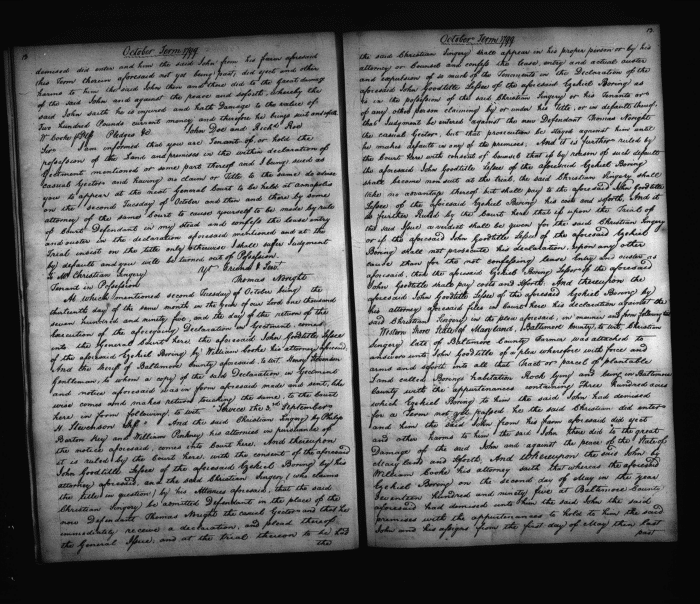 October Term 1799
demised did enter and him the said John from his farm aforesaid
this Term therein aforesaid not yet being past, did eject and other
harms to him the said John then and there did to the Great damage
of the said John and against the peace and soforth, whereby the
said John saith he is injured and hath Damage to the value of
Two hundred Pounds current money and therefore he brings suit and soforth
Wm Cooke Pledges &c John Doe and Richd Roe
Sir I am informed that you are Tenant of or hold the
possession of the Land and premises in this within declaration of
Ejectment mentioned or some part thereof and I being sued as
casual Ejector and having no claim or title to the same do advise
you to appear at the next General Court to be held at Annapolis
on the second Tuesday of October and then and there by some
attorney of the same Court to cause yourself to be made by rule
of Court Defendant in my stead and confess the lease entry
and ouster in the declaration aforesaid mentioned and at the
Trial insist on the title only otherwise I shall suffer Judgment
by default and you will be turned out of Possession
To Mr Christian Singery Yr Friend & Servt
Tenant in Possession Thomas Nought
At which mentioned second Tuesday of October being the
thirteenth day of the same month in the year of our Lord one thousand
seven hundred and ninety five, and the day of the return of the
Execution of the aforegoing Declaration in Ejectment, comes
into the General Court here the aforesaid John Goodtitle Lessee
of the aforesaid Ezekiel Boring by William Cooke his attorney aforesaid,
And the Sheriff of Baltimore County aforesaid to wit, Henry Stevenson
Gentleman, to whom a copy of the said Declaration in Ejectment
and notice aforesaid was in form aforesaid made and sent, like
wise comes and makes return touching the same, to the Court
here in form following to wit "Service the 3d September
H. Stevenson Shff" And the said Christian Singery by Philip
Barton Key and William Pinkney, his attornies in pursuance of
the notice aforesaid, comes into Court here. And thereupon
it is ruled by the Court here, with the consent of the aforesaid
John Goodtitle Lessee of the aforesaid Ezekiel Boring by his
attorney aforesaid and the said Christian Singery (who claims
the title in question) by his attornies aforesaid, that the said
Christian Singery be admitted Defendant in the place of the
now Defendant Thomas Nought the casual Ejector and that he
immediately receive a declaration, and plead thereto
the General Issue, and at the trial thereon to be had
the
October Term 1799
the said Christian Singery shall appear in his proper person or by his
attorney or Counsel and confess the lease, entry and actual ouster
and expulsion of so much of the Tenements in the Declaration of the
aforesaid John Goodtitle Lessee of the aforesaid Ezekiel Boring as
is in the possession of the said Christian Singery or his Tenants or
of any other person claiming by or under his title, or in default thereof
that Judgment be entered against the now Defendant Thomas Nought
the casual Ejector, but that prosecution be stayed against him until
he makes default in any of the premises. And it is further ruled by
the Court here with consent of Counsel that if by reason of such default
the aforesaid John Goodtitle Lessee of the aforesaid Ezekiel Boring
shall become non suit at the trial the said Christian Singery shall
take no advantage thereof but shall pay to the aforesaid John Goodtitle
Lessee of the aforesaid Ezekiel Boring his costs and soforth. And it
is further Ruled by the Court here that if upon the Trial of
the said Issue a verdict shall be given for the said Christian Singery
or if the aforesaid John Goodtitle Lessee of the aforesaid Ezekiel
Boring shall not prosecute his declaration upon any other
cause than for the not confessing lease Entry and ouster as
aforesaid, then the aforesaid Ezekiel Boring Lessor of the aforesaid
John Goodtitle shall pay costs and soforth. And thereupon the
aforesaid John Goodtitle Lessee of the aforesaid Ezekiel Boring by
his attorney aforesaid files in Court here his declaration against the
said Christian Singery in the plea aforesaid, in manner and form following to wit
Western Shore State of Maryland, Baltimore County, to wit, Christian
Singery late of Baltimore County Farmer was attached to
answer unto John Goodtitle of a plea wherefore with force and
arms and soforth into all that Tract or parcel of plantable
Land called Borings habitation Rock lying and being in Baltimore
County with the appurtenances containing three hundred acres
which Ezekiel Boring to him the said John had demised
for a Term not yet passed he the said Christian did enter
and him the said John from his Farm aforesaid did eject
and other harms to him the said John then did to the great
Damage of the said John and against the peace of the State of
Maryland and soforth. And Whereupon the said John by
William Cooke his attorney saith that whereas the aforesaid
Ezekiel Boring on the second day of May in the year
Seventeen hundred and ninety five at Baltimore County
aforesaid had demised unto him the said John the said
premises with the appurtenances to hold to him the said
John and his assigns from the first day of May then last
past